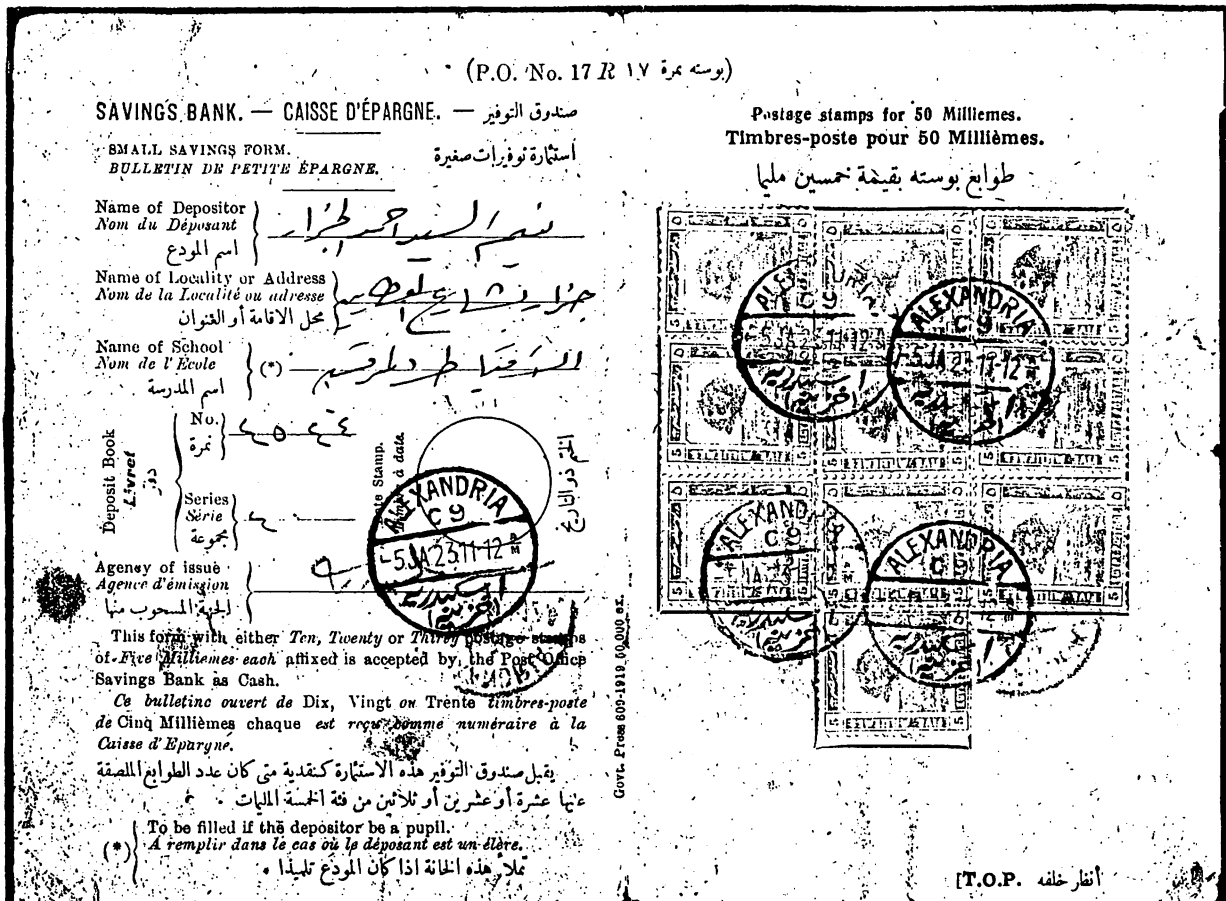 (P.O. No. 17 R بوسته نمرة ١٧)
SAVINGS BANK. — CAISSE D'ÉPARGNE. — صندوق التوفير
SMALL SAVINGS FORM.
BULLETIN DE PETITE ÉPARGNE.
أستئارة توفيرات صغيرة
Name of Depositor
Nom du Déposant
اسم المودع
السيد احمد الجزار
Name of Locality or Address
Nom de la Localité ou adresse
محل الاقامة أو العنوان
Name of School
Nom de l'École
اسم المدرسة
(*)
Deposit Book
Livret
دفتر
No.
نمرة
Series
Série
مجموعة
Date Stamp.
Timbre à date.
الختم ذو التاريخ
ALEXANDRIA
C 9
-5 JA 23 11-12 AM
اسكندريه
Agency of issue
Agence d'émission
الجهة المسحوب منها
This form with either Ten, Twenty or Thirty postage stamps
of Five Milliemes each affixed is accepted by the Post Office
Savings Bank as Cash.
Ce bulletinc ouvert de Dix, Vingt ou Trente timbres-poste
de Cinq Millièmes chaque est reçu comme numéraire à la
Caisse d'Epargne.
يقبل صندوق التوفير هذه الاستئارة كنقدية متى كان عدد الطوابع الملصقة
عنها عشرة أو عشرين أو ثلاثين من فئة الخمسة المليات .
(*)
To be filled if the depositor be a pupil.
A remplir dans le cas où le déposant est un élère.
تملأ هذه الخانة اذا كان المودع تلميذا .
Govt. Press 609-1919 50,000 ex.
Postage stamps for 50 Milliemes.
Timbres-poste pour 50 Millièmes.
طوابع بوسته بقيمة خمسين مليا
ALEXANDRIA
C 9
ALEXANDRIA
C 9
-5 JA 23 11-12
اسكندريه
ALEXANDRIA
C 9
ALEXANDRIA
C 9
[T.O.P. أنظر خلفه